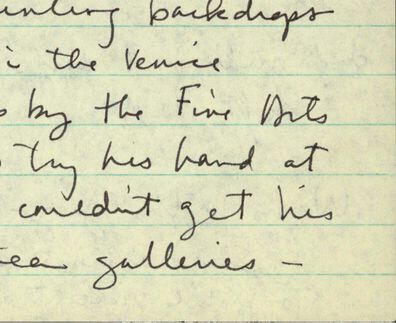 backdrops
the Venice
by the Fine Arts
try his hand at
couldn't get his
galleries –